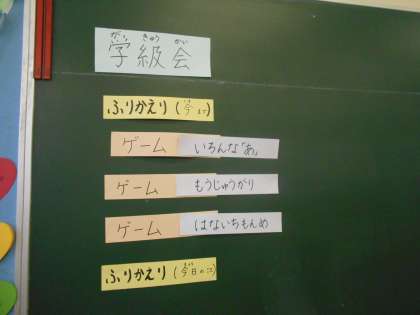 学級会
ふりかえり(今まで)
ゲーム いろんな「あ」
ゲーム もうじゅうがり
ゲーム はないちもんめ
ふりかえり(今日の会)